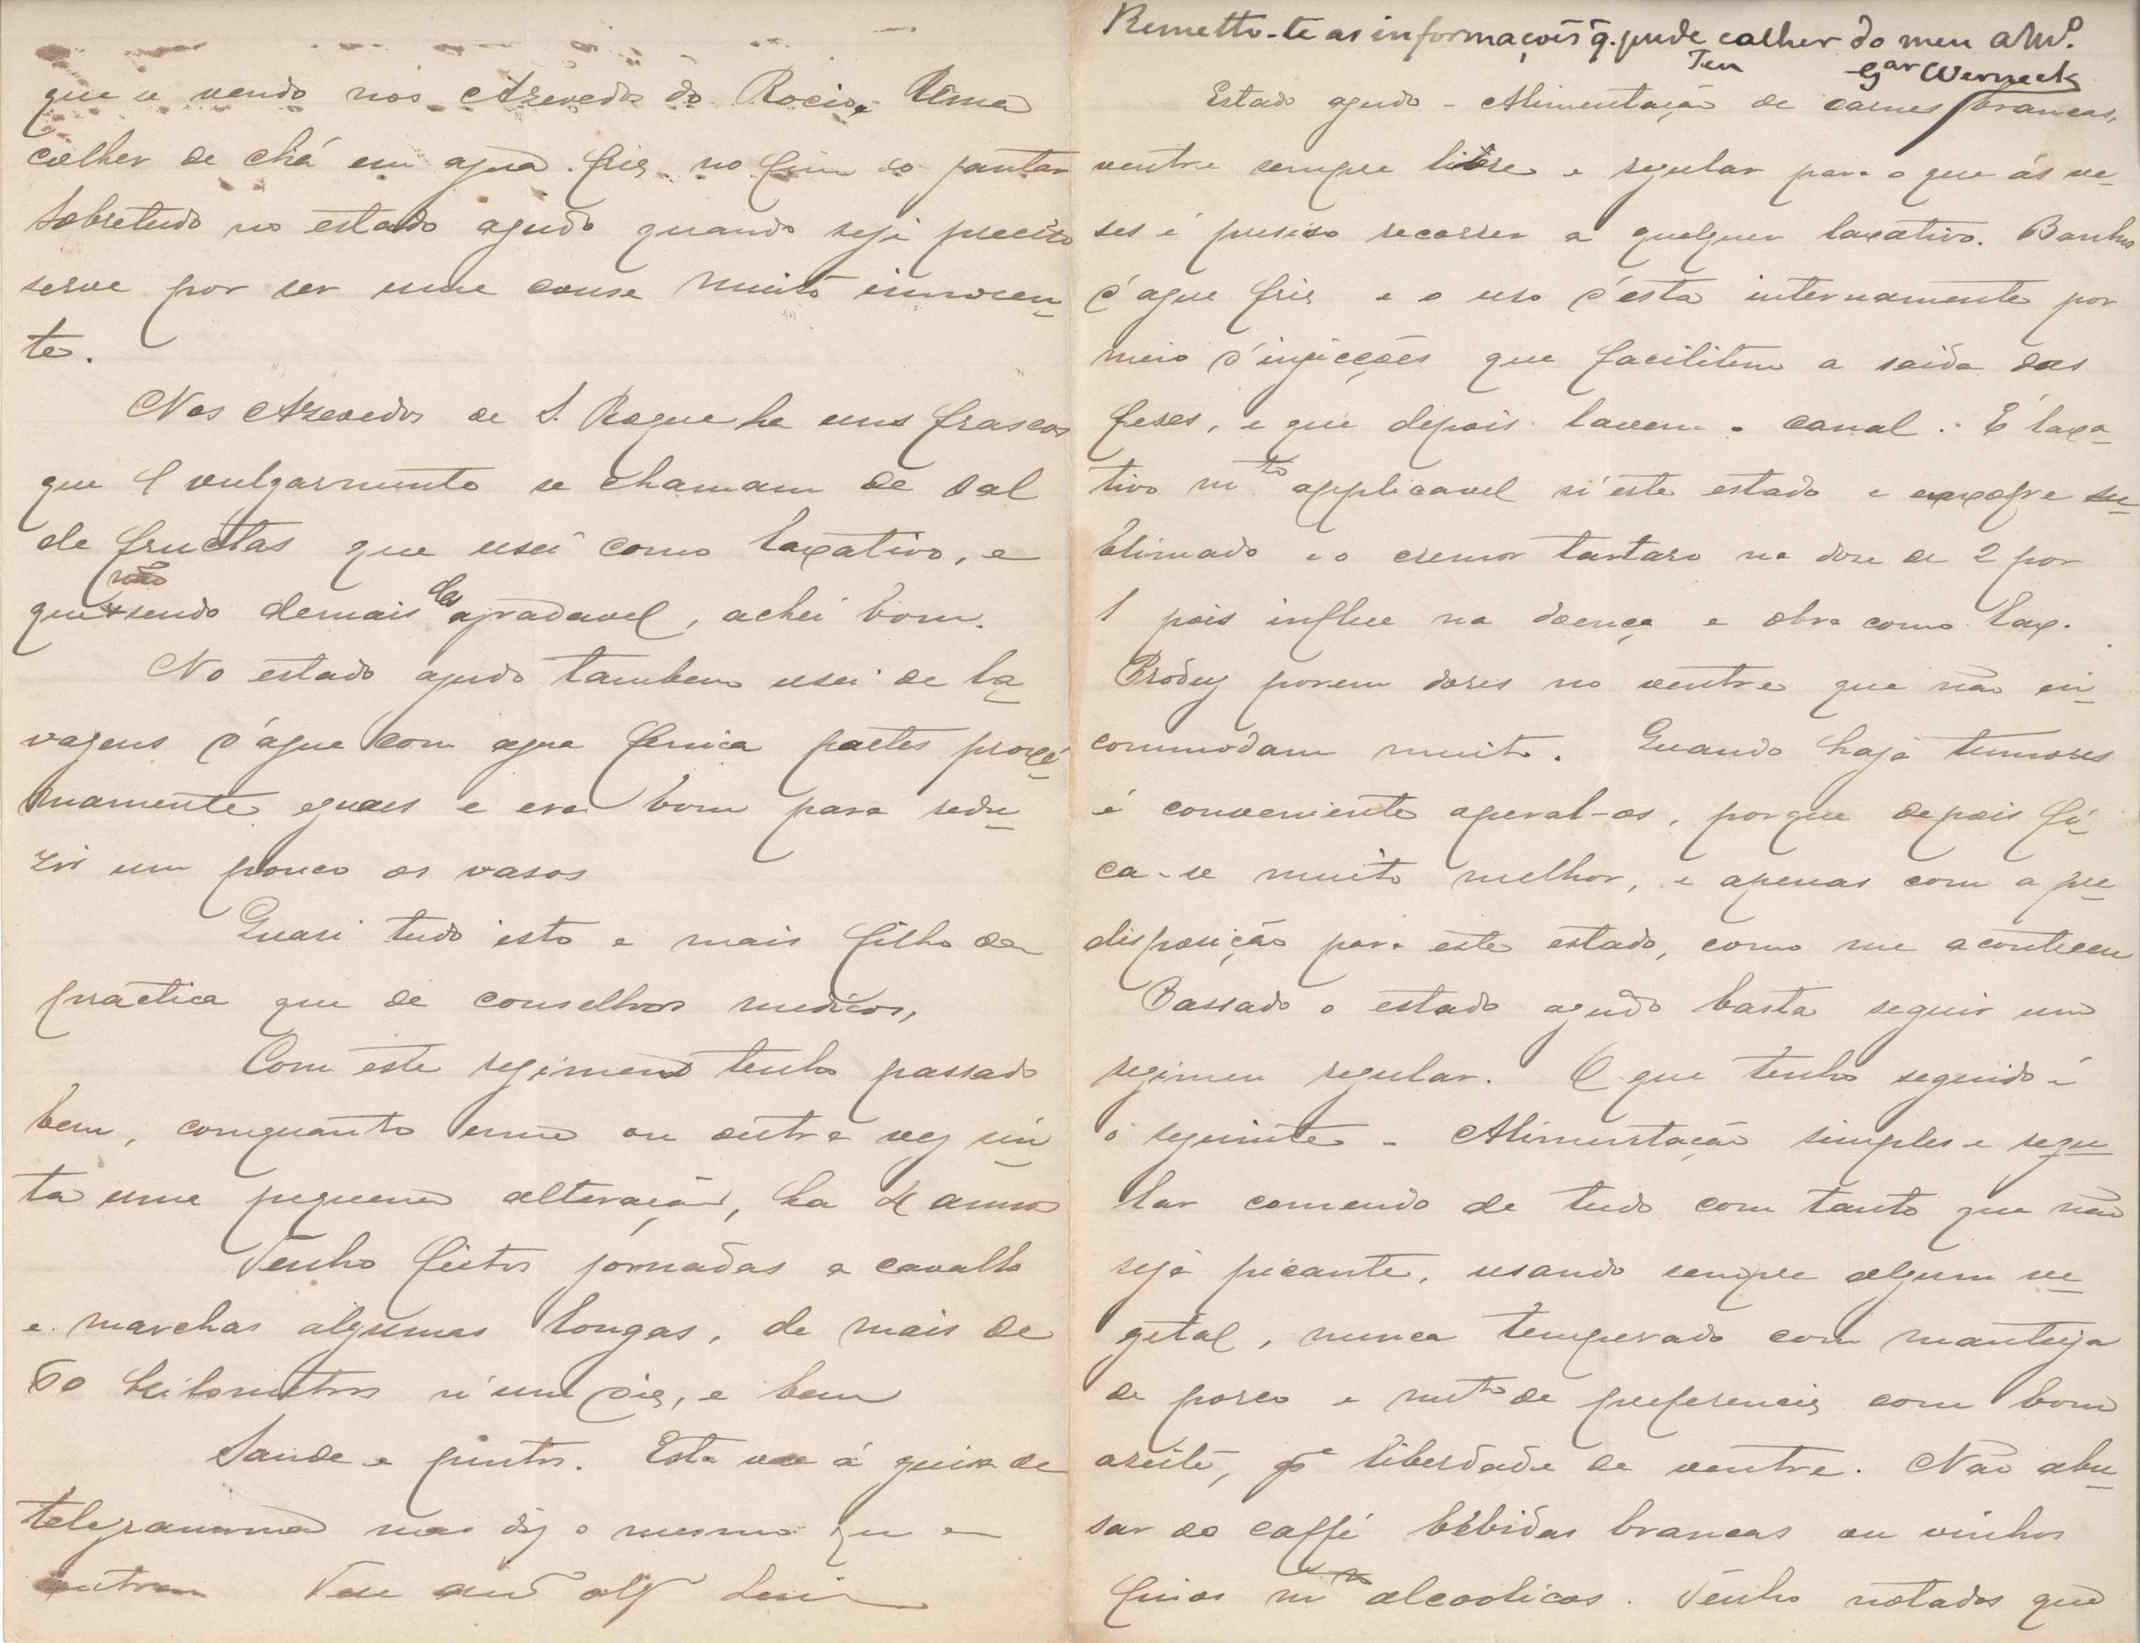 Remetto-te as informações q. pude colher do meu am.º
Ten
Gar Werneck
Estado agudo - Alimentação de carnes brancas,
ventre sempre livre e regular para o que ás ve-
ses é preciso recorrer a qualquer laxativo. Banhos
d'agua fria e o uso d'esta internamente por
meio d'injecções que facilitem a saida das
feses, e que depois lavem o canal. É laxa-
tivo mto applicavel n'este estado e enxofre su-
blimado e o cremor tartaro na dose de 2 por
1 pois influe na doença e obra como lax.
Produz porem dores no ventre que não in-
commodam muito. Quando haja tumores
é conveniente operal-os, porque depois fi-
ca-se muito melhor, e apenas com a pre-
disposição para este estado, como me aconteceu
Passado o estado agudo basta seguir um
regimen regular. O que tenho seguido é
o seguinte - Alimentação simples e regu-
lar comendo de tudo com tanto que não
seja picante, usando sempre algum ve-
getal, nunca temperado com manteiga
de porco e mto de preferencia com bom
azeite, pª liberdade de ventre. Não abu-
sar do caffé bebidas brancas ou vinhos
finos mto alcoolicos. Tenho notado que
que se vende nos Azevedos do Rocio, Uma
colher de chá em agua fria no fim do jantar
Sobretudo no estado agudo quando seja preciso
serve por ser uma cousa muito innocen-
te.
Nos Azevedos de S. Roque ha uns frascos
que vulgarmente se chamam de sal
de fructas que usei como laxativo, e
que não sendo demais desagradavel, achei bom.
No estado agudo tambem usei de la-
vagens d'agua com agua fenica partes proxi-
mamente eguaes e era bom para redu-
zir um pouco os vasos
Quasi tudo isto e mais filho da
practica que de conselhos medicos,
Com este regimen tenho passado
bem, comquanto uma ou outra vez sin-
ta uma pequena alteração, ha 4 annos
Tenho feito jornadas a cavallo
e marchas algumas longas, de mais de
60 kilometros n'um dia, e bem
Saude e pintos. Esta vae á guisa de
telegramma mas diz o mesmo que
Teu